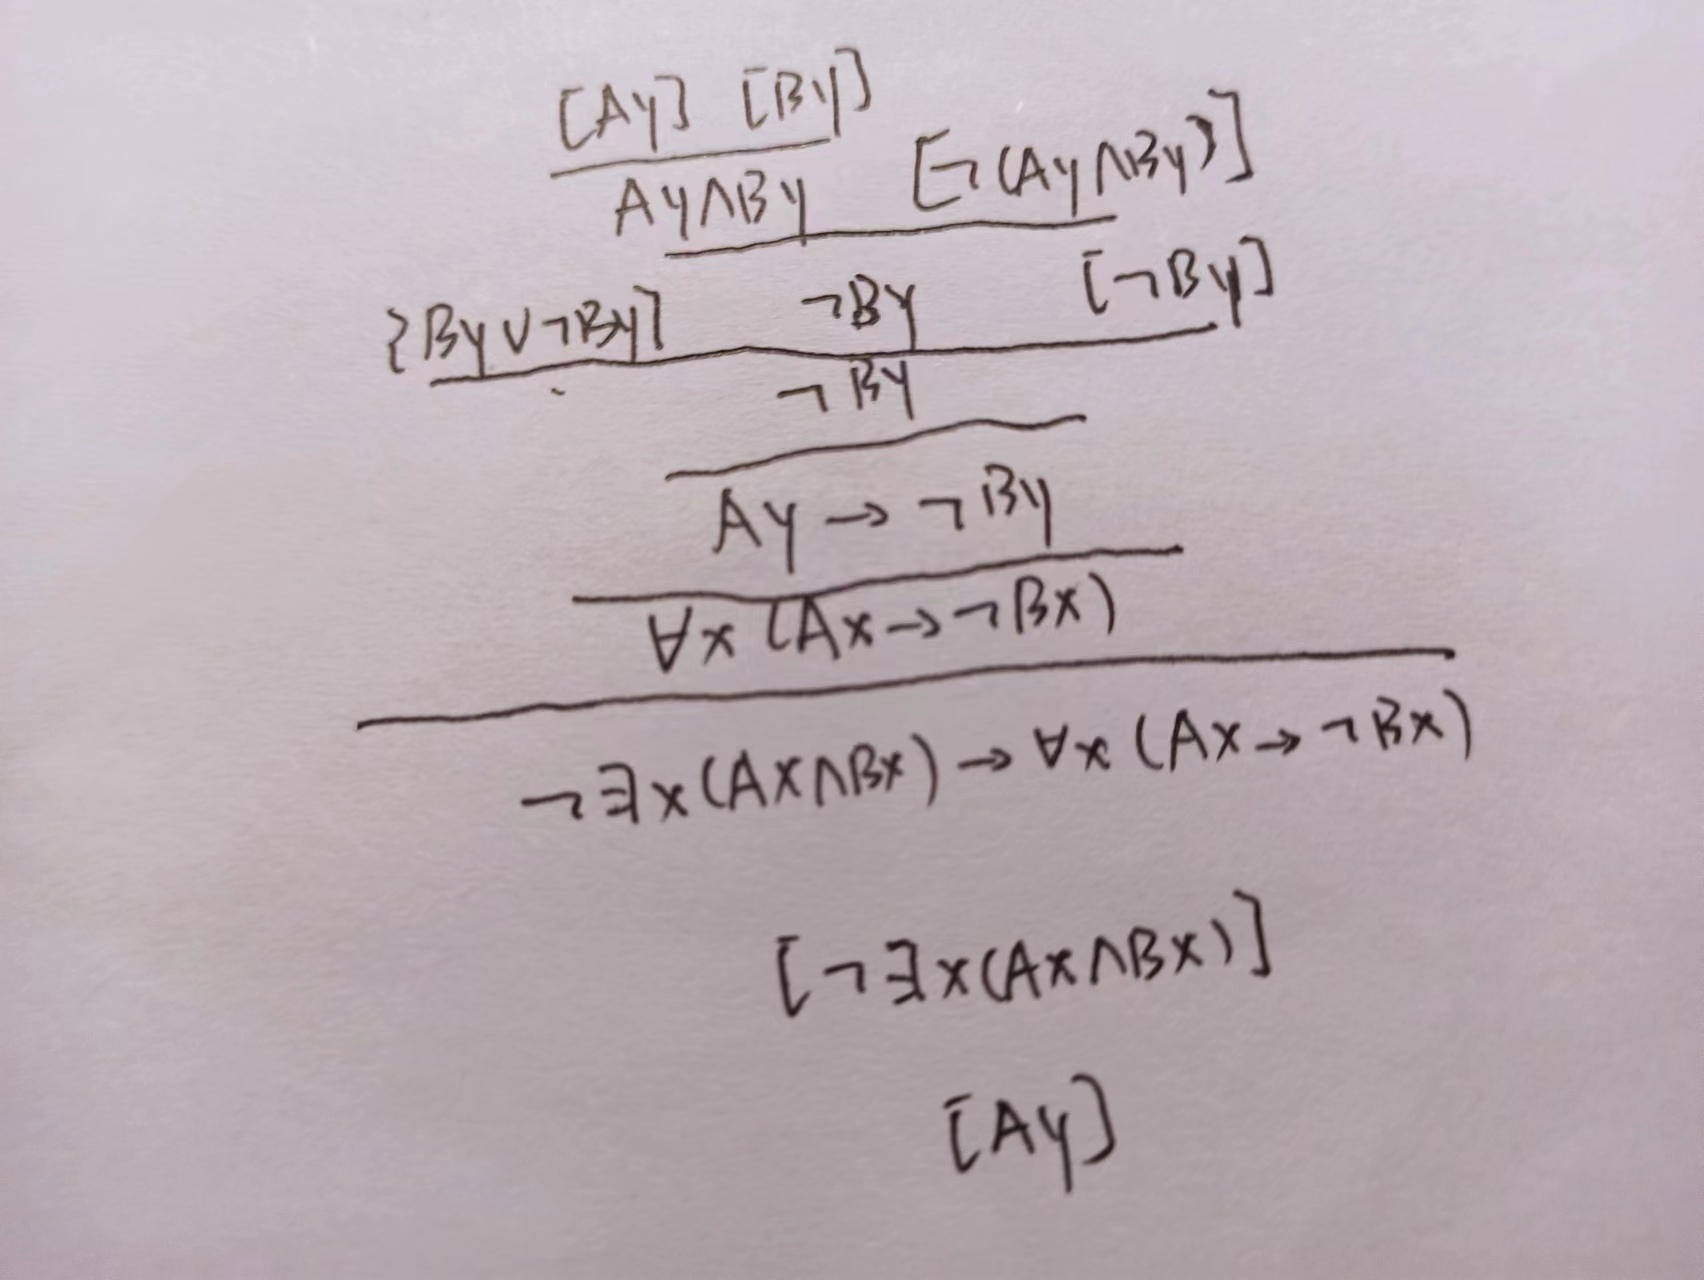 [Ay] [By]
Ay∧By [¬(Ay∧By)]
{By∨¬By] ¬By [¬By]
¬By
Ay→¬By
∀x(Ax→¬Bx)
¬∃x(Ax∧Bx)→∀x(Ax→¬Bx)
[¬∃x(Ax∧Bx)]
[Ay]